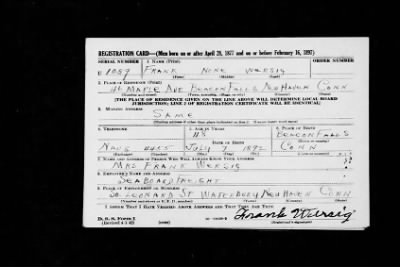 REGISTRATION CARD—(Men born on or after April 28, 1877 and on or before February 16, 1897)
SERIAL NUMBER 1. NAME (Print) ORDER NUMBER
U 1059 FRANK NONE WERSIG
(First) (Middle) (Last)
2. PLACE OF RESIDENCE (Print)
46 MAPLE AVE BEACON FALLS NEW HAVEN CONN
(Number and street) (Town, township, village, or city) (County) (State)
[THE PLACE OF RESIDENCE GIVEN ON THE LINE ABOVE WILL DETERMINE LOCAL BOARD
JURISDICTION; LINE 2 OF REGISTRATION CERTIFICATE WILL BE IDENTICAL]
3. MAILING ADDRESS
SAME
[Mailing address if other than place indicated on line 2. If same insert word same]
4. TELEPHONE 5. AGE IN YEARS 6. PLACE OF BIRTH
BEACON FALLS
DATE OF BIRTH (Town or county)
JULY 7 1892 CONN
(Exchange) (Number) (Mo.) (Day) (Yr.) (State or country)
7. NAME AND ADDRESS OF PERSON WHO WILL ALWAYS KNOW YOUR ADDRESS
MRS FRANK WERSIG
8. EMPLOYER'S NAME AND ADDRESS
SEABOARD FREIGHT
9. PLACE OF EMPLOYMENT OR BUSINESS
LEONARD ST WATERBURY NEW HAVEN CONN
(Number and street or R. F. D. number) (Town) (County) (State)
I AFFIRM THAT I HAVE VERIFIED ABOVE ANSWERS AND THAT THEY ARE TRUE.
D. S. S. Form 1
(Revised 4-1-42) (over)
Frank Wersig
(Registrant's signature)